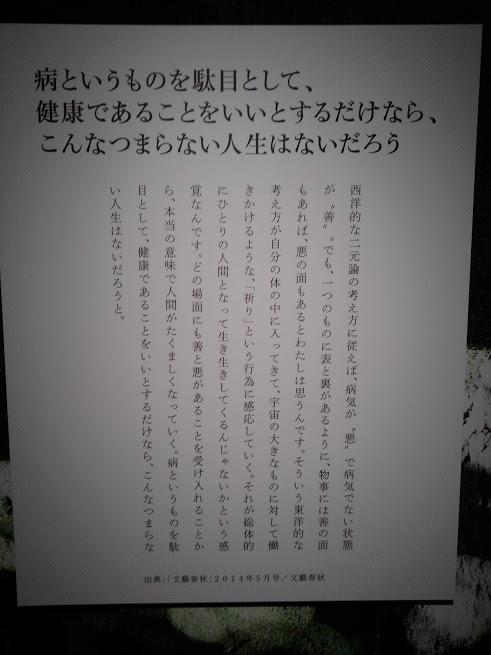 病というものを駄目として、
健康であることをいいとするだけなら、
こんなつまらない人生はないだろう
西洋的な二元論の考え方に従えば、病気が〝悪〟で病気でない状態
が〝善〟。でも、一つのものに表と裏があるように、物事には善の面
もあれば、悪の面もあるとわたしは思うんです。そういう東洋的な
考え方が自分の体の中に入ってきて、宇宙の大きなものに対して働
きかけるような、「祈り」という行為に感応していく。それが総体的
にひとりの人間となって生き生きしてくるんじゃないかという感
覚なんです。どの場面にも善と悪があることを受け入れることか
ら、本当の意味で人間がたくましくなっていく。病というものを駄
目として、健康であることをいいとするだけなら、こんなつまらな
い人生はないだろうと。
出典:「文藝春秋」2014年5月号／文藝春秋